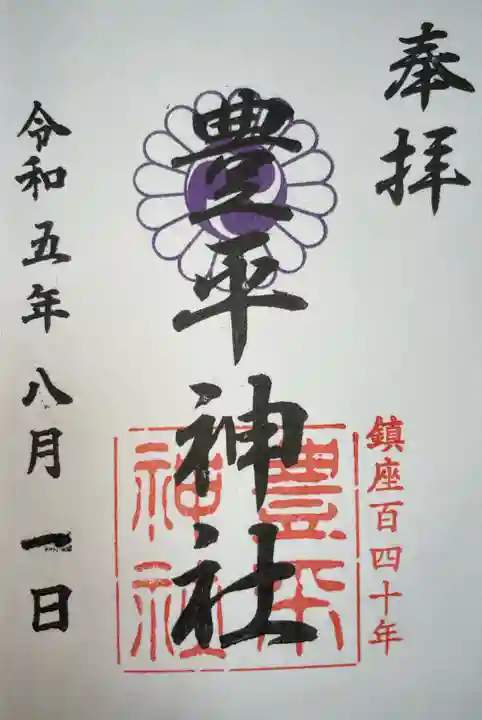 奉拝
豊平神社
豊平
神社
鎮座百四十年
令和五年八月一日